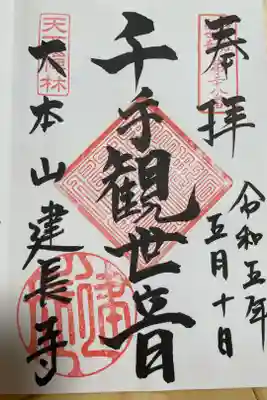 奉拝
令和五年
五月十日
千手観世音
天下禅林
大本山建長寺